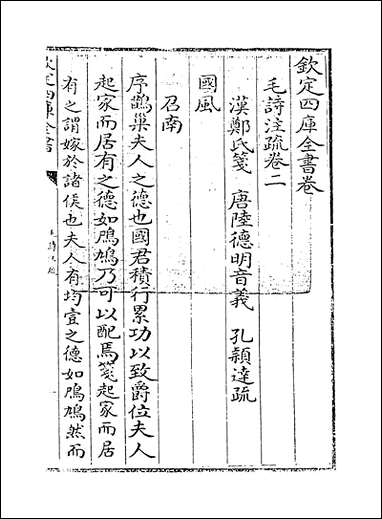 欽定四庫全書卷
毛詩注疏卷二
漢鄭氏箋　唐陸德明音義　孔穎達疏
國風
召南
序鵲巢夫人之德也國君積行累功以致爵位夫人
起家而居有之德如鳲鳩乃可以配焉箋起家而居
有之謂嫁於諸侯也夫人有均壹之德如鳲鳩然而
欽定四庫全書